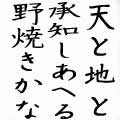 天と地と
承知しあへる
野焼きかな